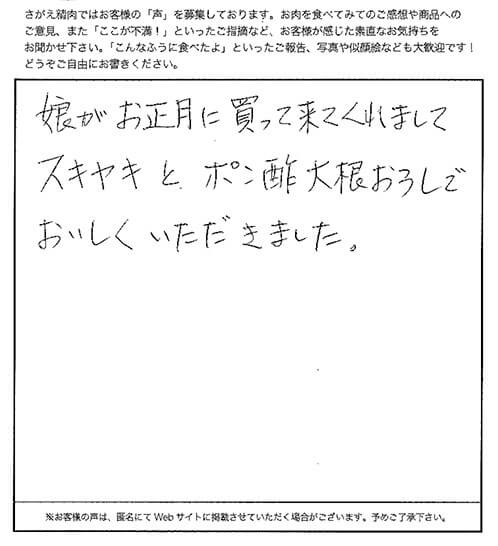 さがえ精肉ではお客様の「声」を募集しております。お肉を食べてみてのご感想や商品への
ご意見、また「ここが不満！」といったご指摘など、お客様が感じた素直なお気持ちを
お聞かせ下さい。「こんなふうに食べたよ」といったご報告、写真や似顔絵なども大歓迎です！
どうぞご自由にお書きください。
娘がお正月に買って来てくれまして
スキヤキと、ポン酢大根おろしで
おいしくいただきました。
※お客様の声は、匿名にてWebサイトに掲載させていただく場合がございます。予めご了承下さい。